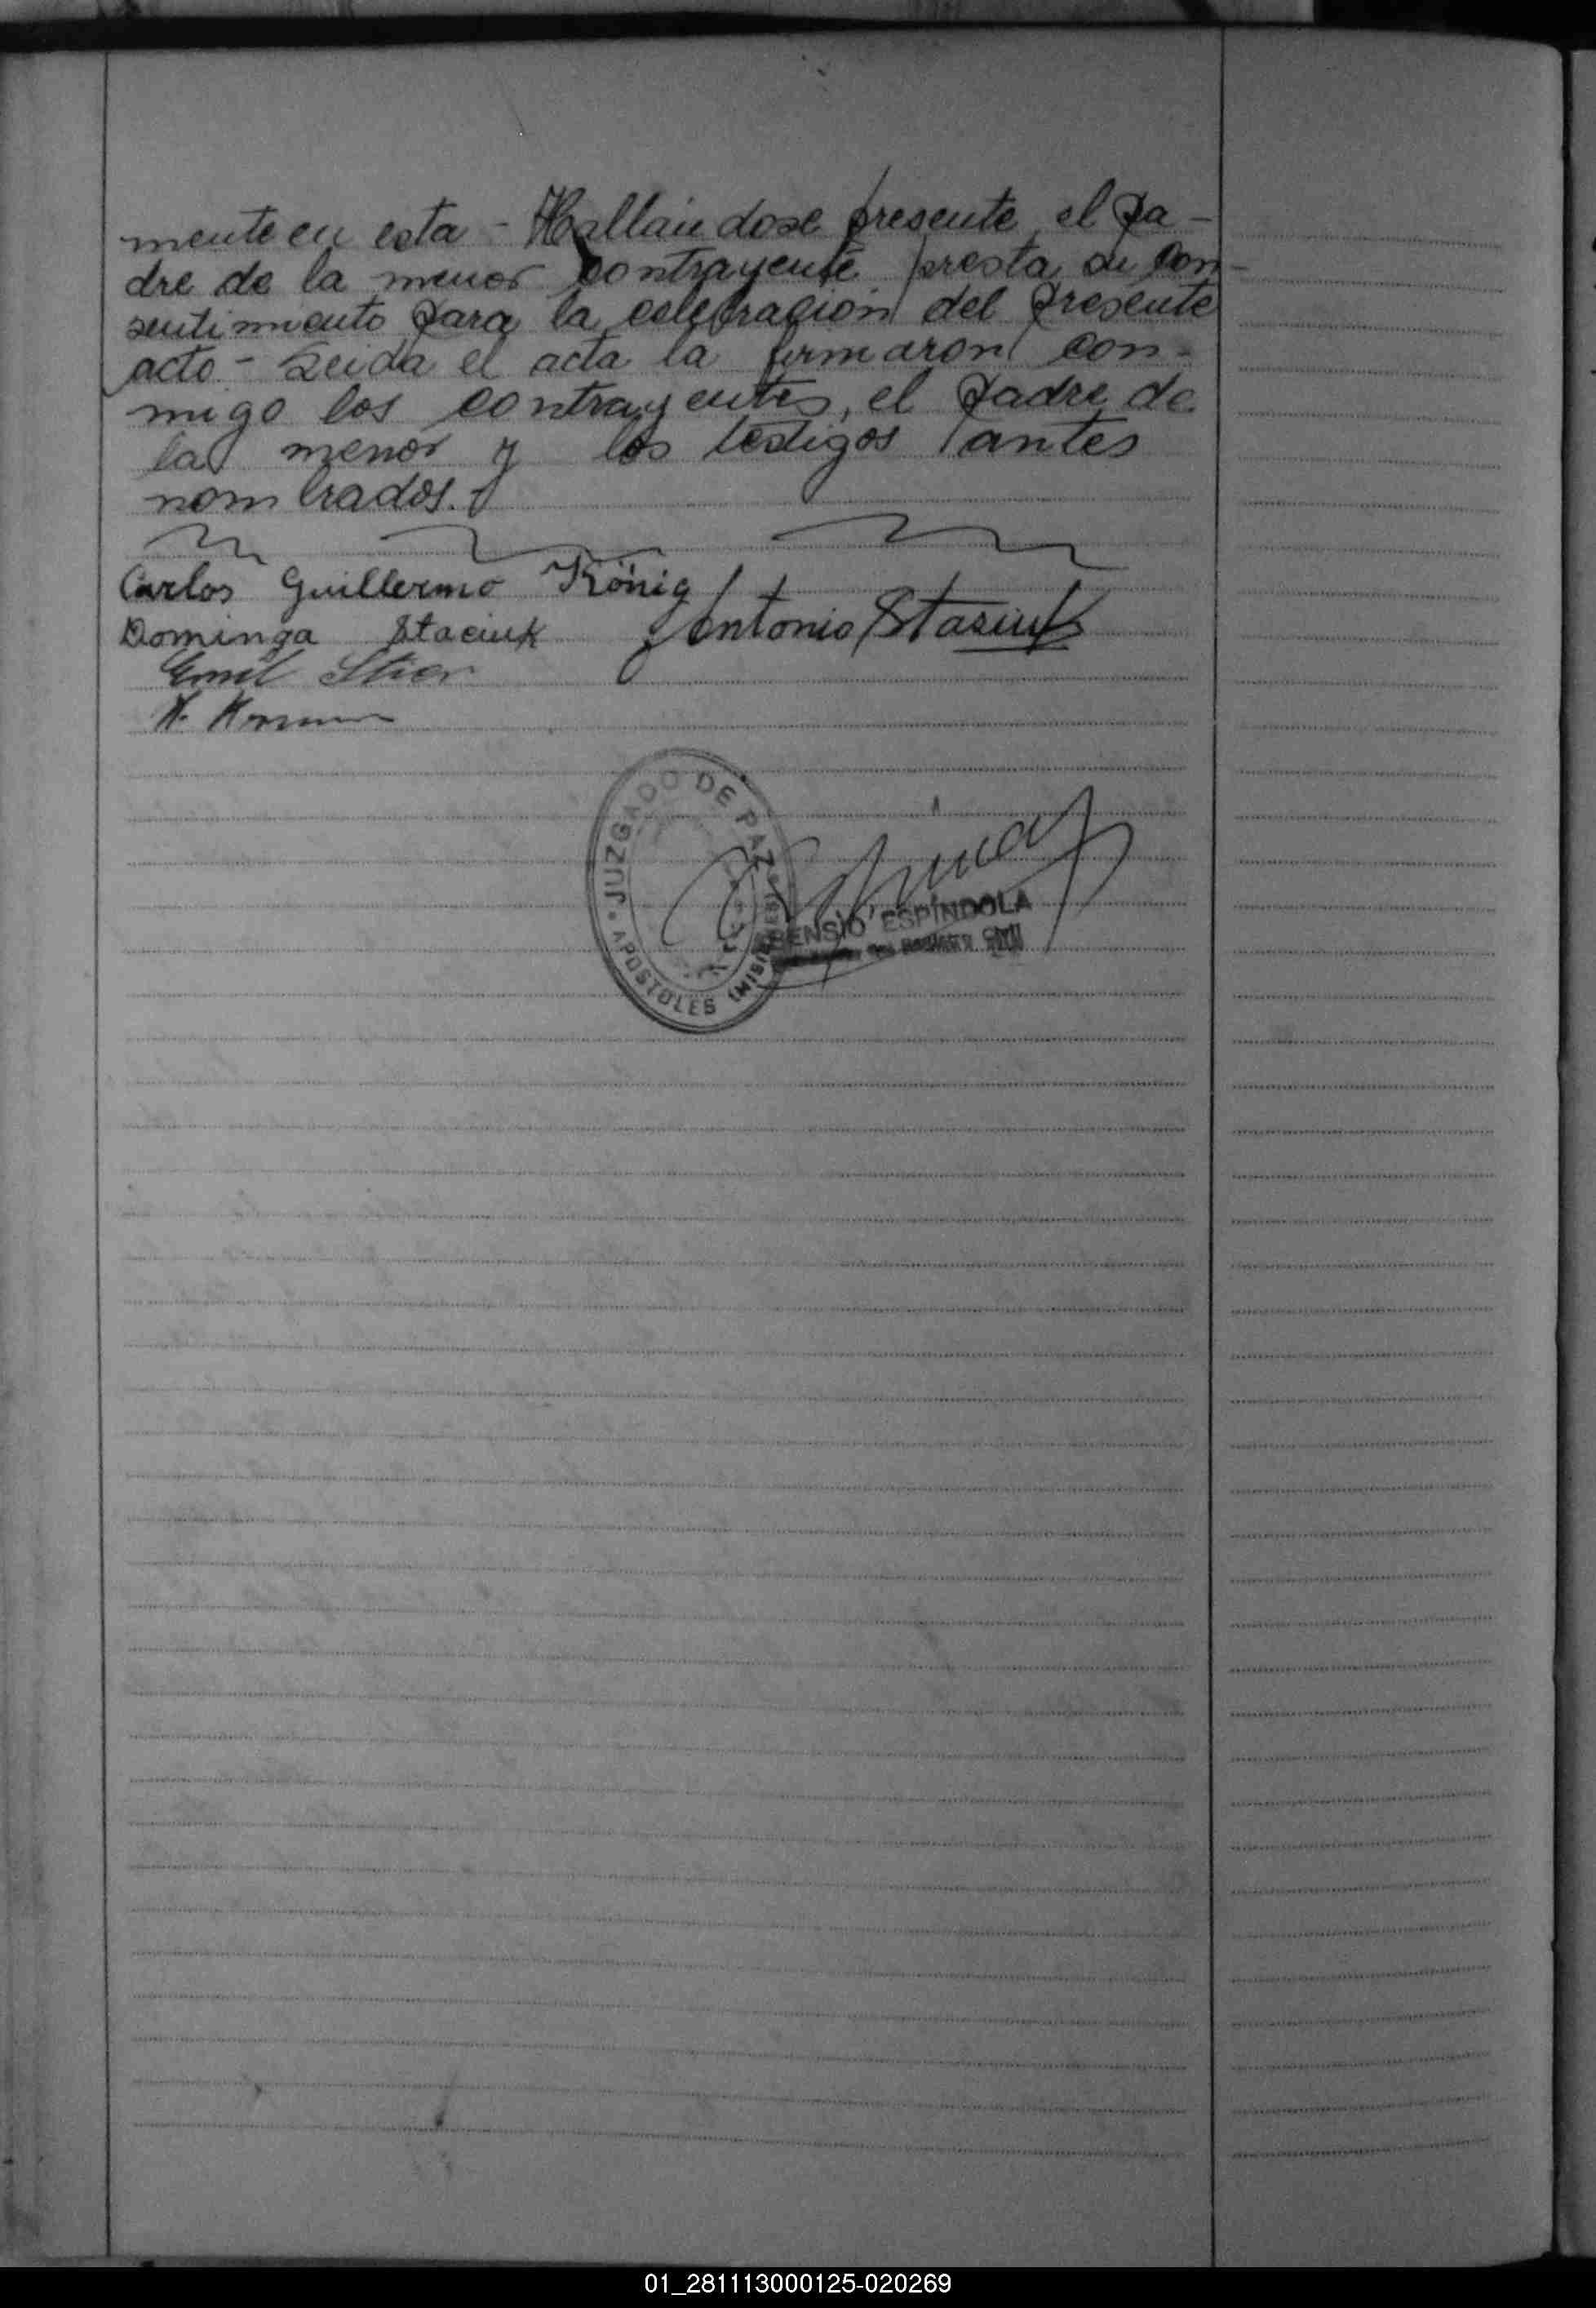 mente en esta - Hallándose presente el pa-
dre de la menor contrayente presta su con-
sentimiento para la celebración del presente
acto - Leida el acta la firmaron con-
migo los contrayentes, el padre de
la menor y los testigos antes
nombrados.
Carlos Guillermo König
Dominga Staciuk Antonio Stasiuk
Emil Stier
JUZGADO DE PAZ
APOSTOLES (MISIONES)
ASENSIO ESPÍNDOLA
del Registro Civil
01_281113000125-020269